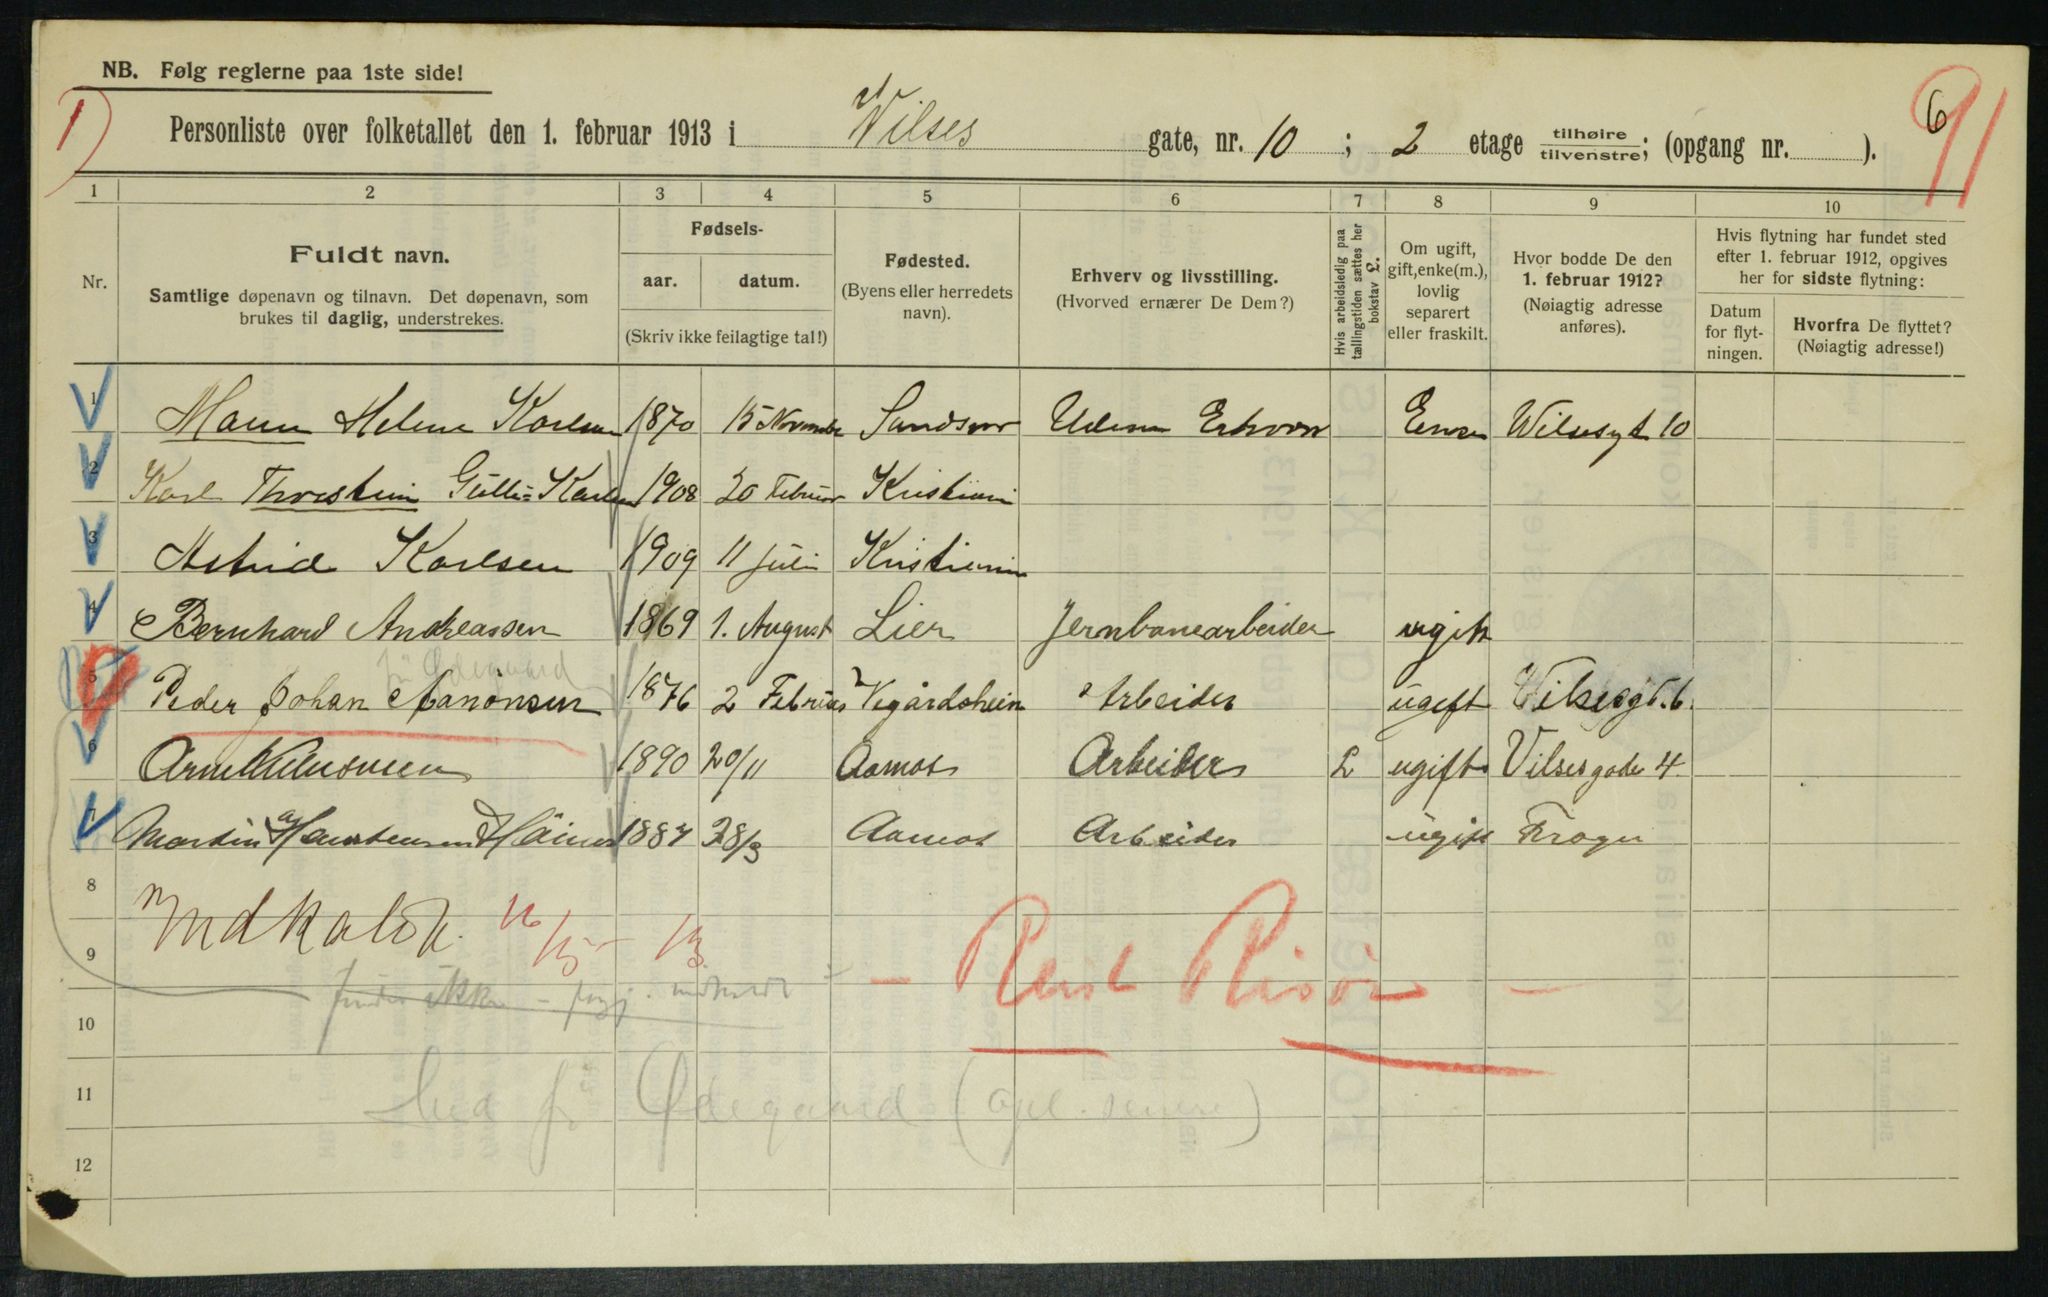 NB. Følg reglerne paa 1ste side!
1)
6
91
Personliste over folketallet den 1. februar 1913 i Vilses gate, nr. 10 ; 2 etage tilhøire tilvenstre; (opgang nr. ).
1 2 3 4 5 6 7 8 9 10
Nr.
Fuldt navn.
Samtlige døpenavn og tilnavn. Det døpenavn, som
brukes til daglig, understrekes.
Fødsels-
aar. datum.
(Skriv ikke feilagtige tal!)
Fødested.
(Byens eller herredets
navn).
Erhverv og livsstilling.
(Hvorved ernærer De Dem?)
Hvis arbeidsledig paa
tællingstiden sættes her
bokstav L.
Om ugift,
gift, enke(m.),
lovlig
separert
eller fraskilt.
Hvor bodde De den
1. februar 1912?
(Nøiagtig adresse
anføres).
Hvis flytning har fundet sted
efter 1. februar 1912, opgives
her for sidste flytning:
Datum
for flyt-
ningen.
Hvorfra De flyttet?
(Nøiagtig adresse!)
1 Helene Karlsen 1870 15 November Uden Erhverv Vilsesgt 10
2 Karl Thorstein Karlsen 1908 20 Februar Kristiania
3 Astrid Karlsen 1909 11 Juli Kristiania
4 Bernhard Andreassen 1869 1. August Lier Jernbanearbeider ugift
før Ødegaard
5 Peder Johan Aanonsen 1876 2 Februar Vegårdshein Arbeider ugift Vilsesgt. 6.
6 1890 20/11 Aamot Arbeider L ugift Vilsesgade 4
7 Martin 1887 28/3 Aamot Arbeider ugift
8
9 Indkaldt. 16/5 - 13.
finder ikke - indkaldt
- Reist Risör -
10
11 før Ødegaard (opl. senere)
12